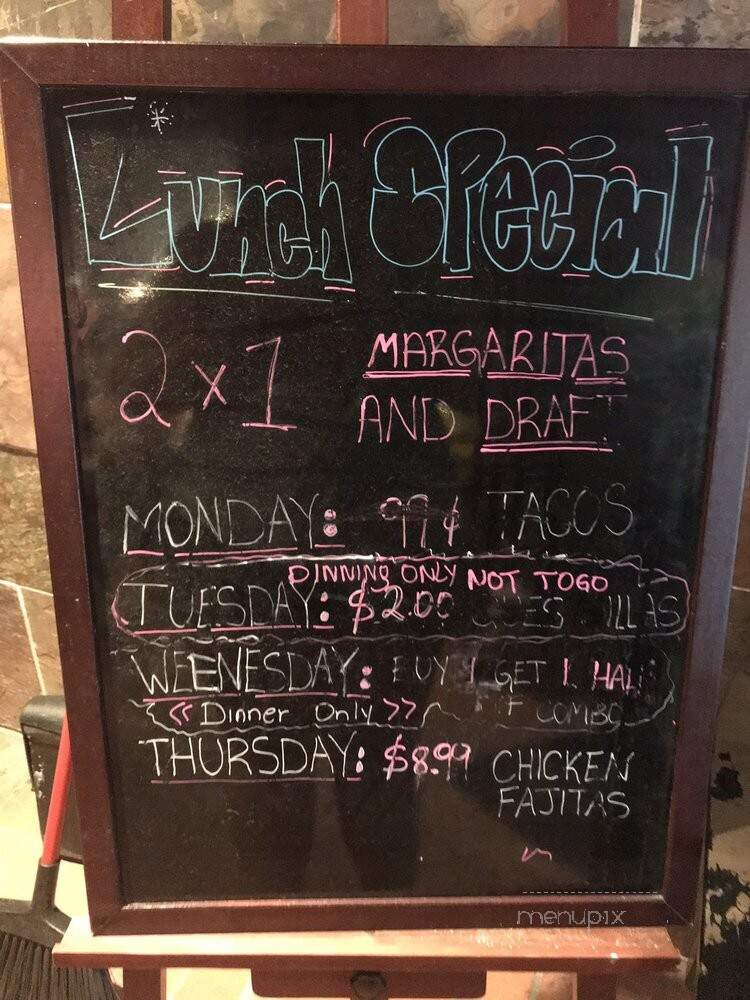 Lunch Special
2 x 1 MARGARITAS
AND DRAFT
MONDAY: 99¢ TACOS
DINNING ONLY NOT TOGO
TUESDAY: $2.00
WEENESDAY: BUY 1 GET 1 HAL
<< Dinner Only >> F COMBO
THURSDAY: $8.99 CHICKEN
FAJITAS
menupix